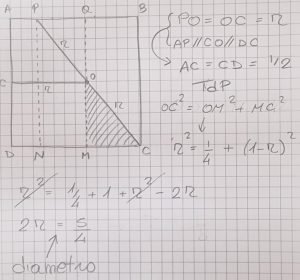 A P Q B
r
C r O
r
D N M C
PO = OC = r
AP // CO // DC
AC = CD = 1/2
TdP
OC² = OM² + MC²
r² = 1/4 + (1-r)²
r² = 1/4 + 1 + r² - 2r
2r = 5/4
diametro